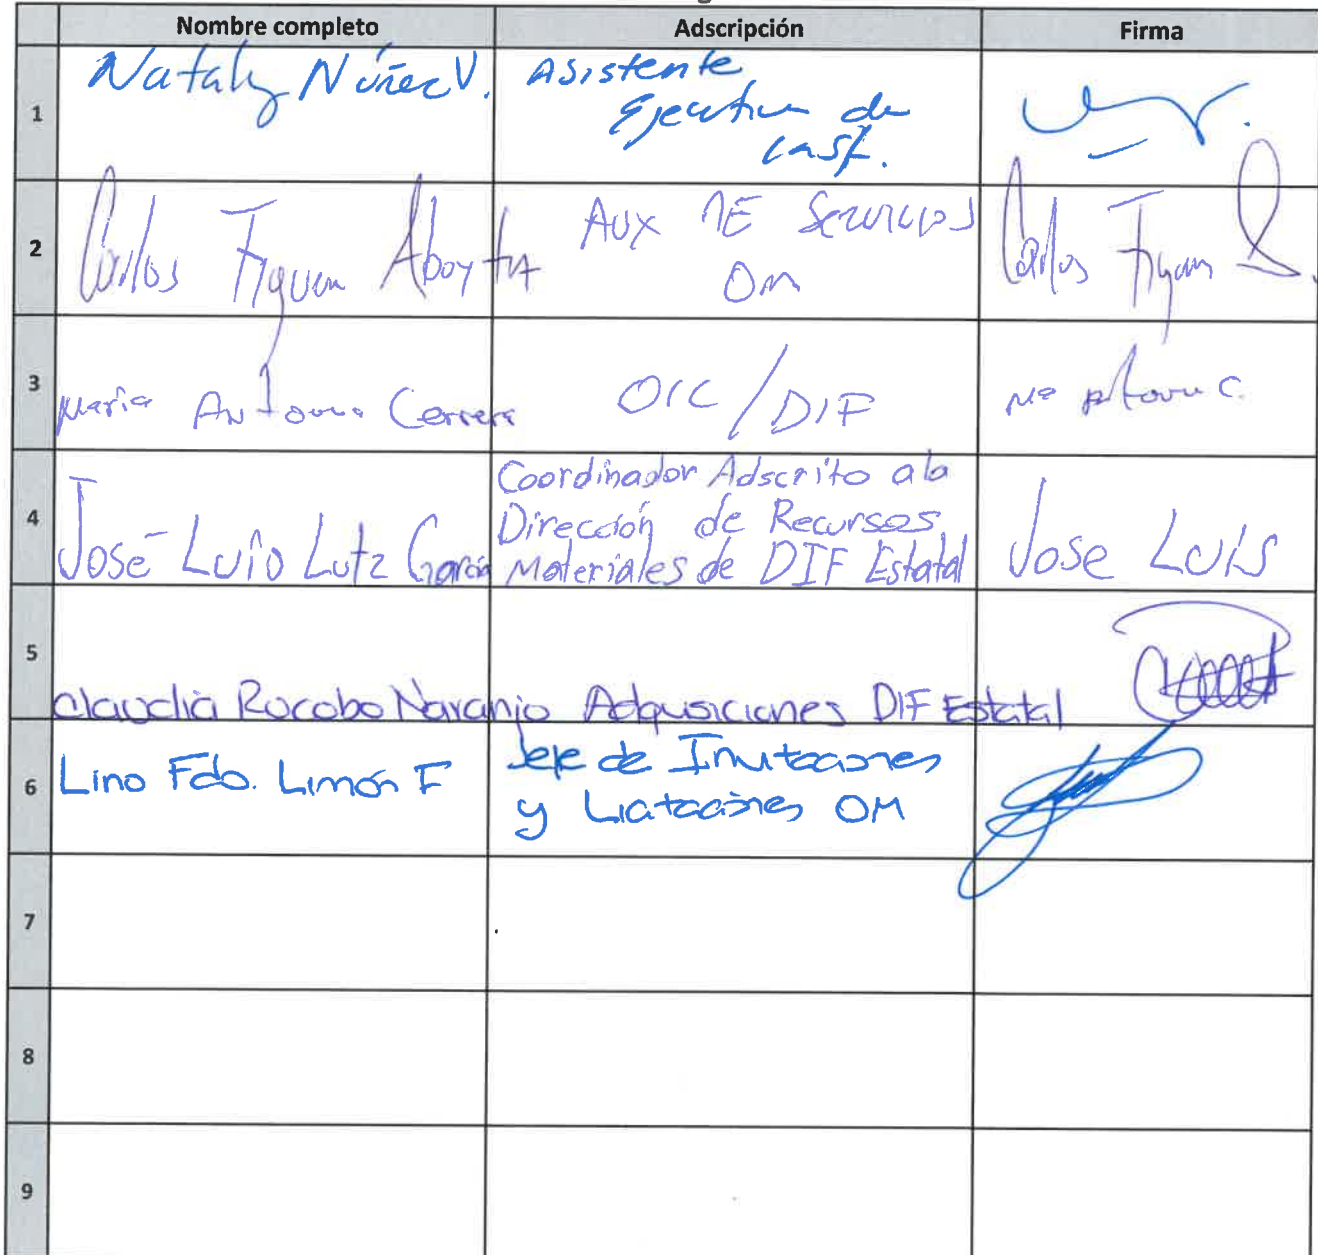 Nombre completo Adscripción Firma
1 Nataly Núñez V. Asistente
Ejecutiva de
2 Carlos Figueroa AUX DE Servicios Carlos
OM
3 Maria Antonia Cerrera OIC/DIF Mª C.
4 José Luis Lutz García Coordinador Adscrito a la
Dirección de Recursos
Materiales de DIF Estatal Jose LUIS
5 Claudia Rocobo Naranjo Adqusiciones DIF Estatal
6 Lino Fdo. Limón F Jefe de Invitaciones
y Licitaciones OM
7
8
9